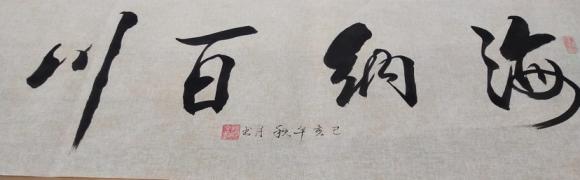 海纳百川
己亥年秋月书